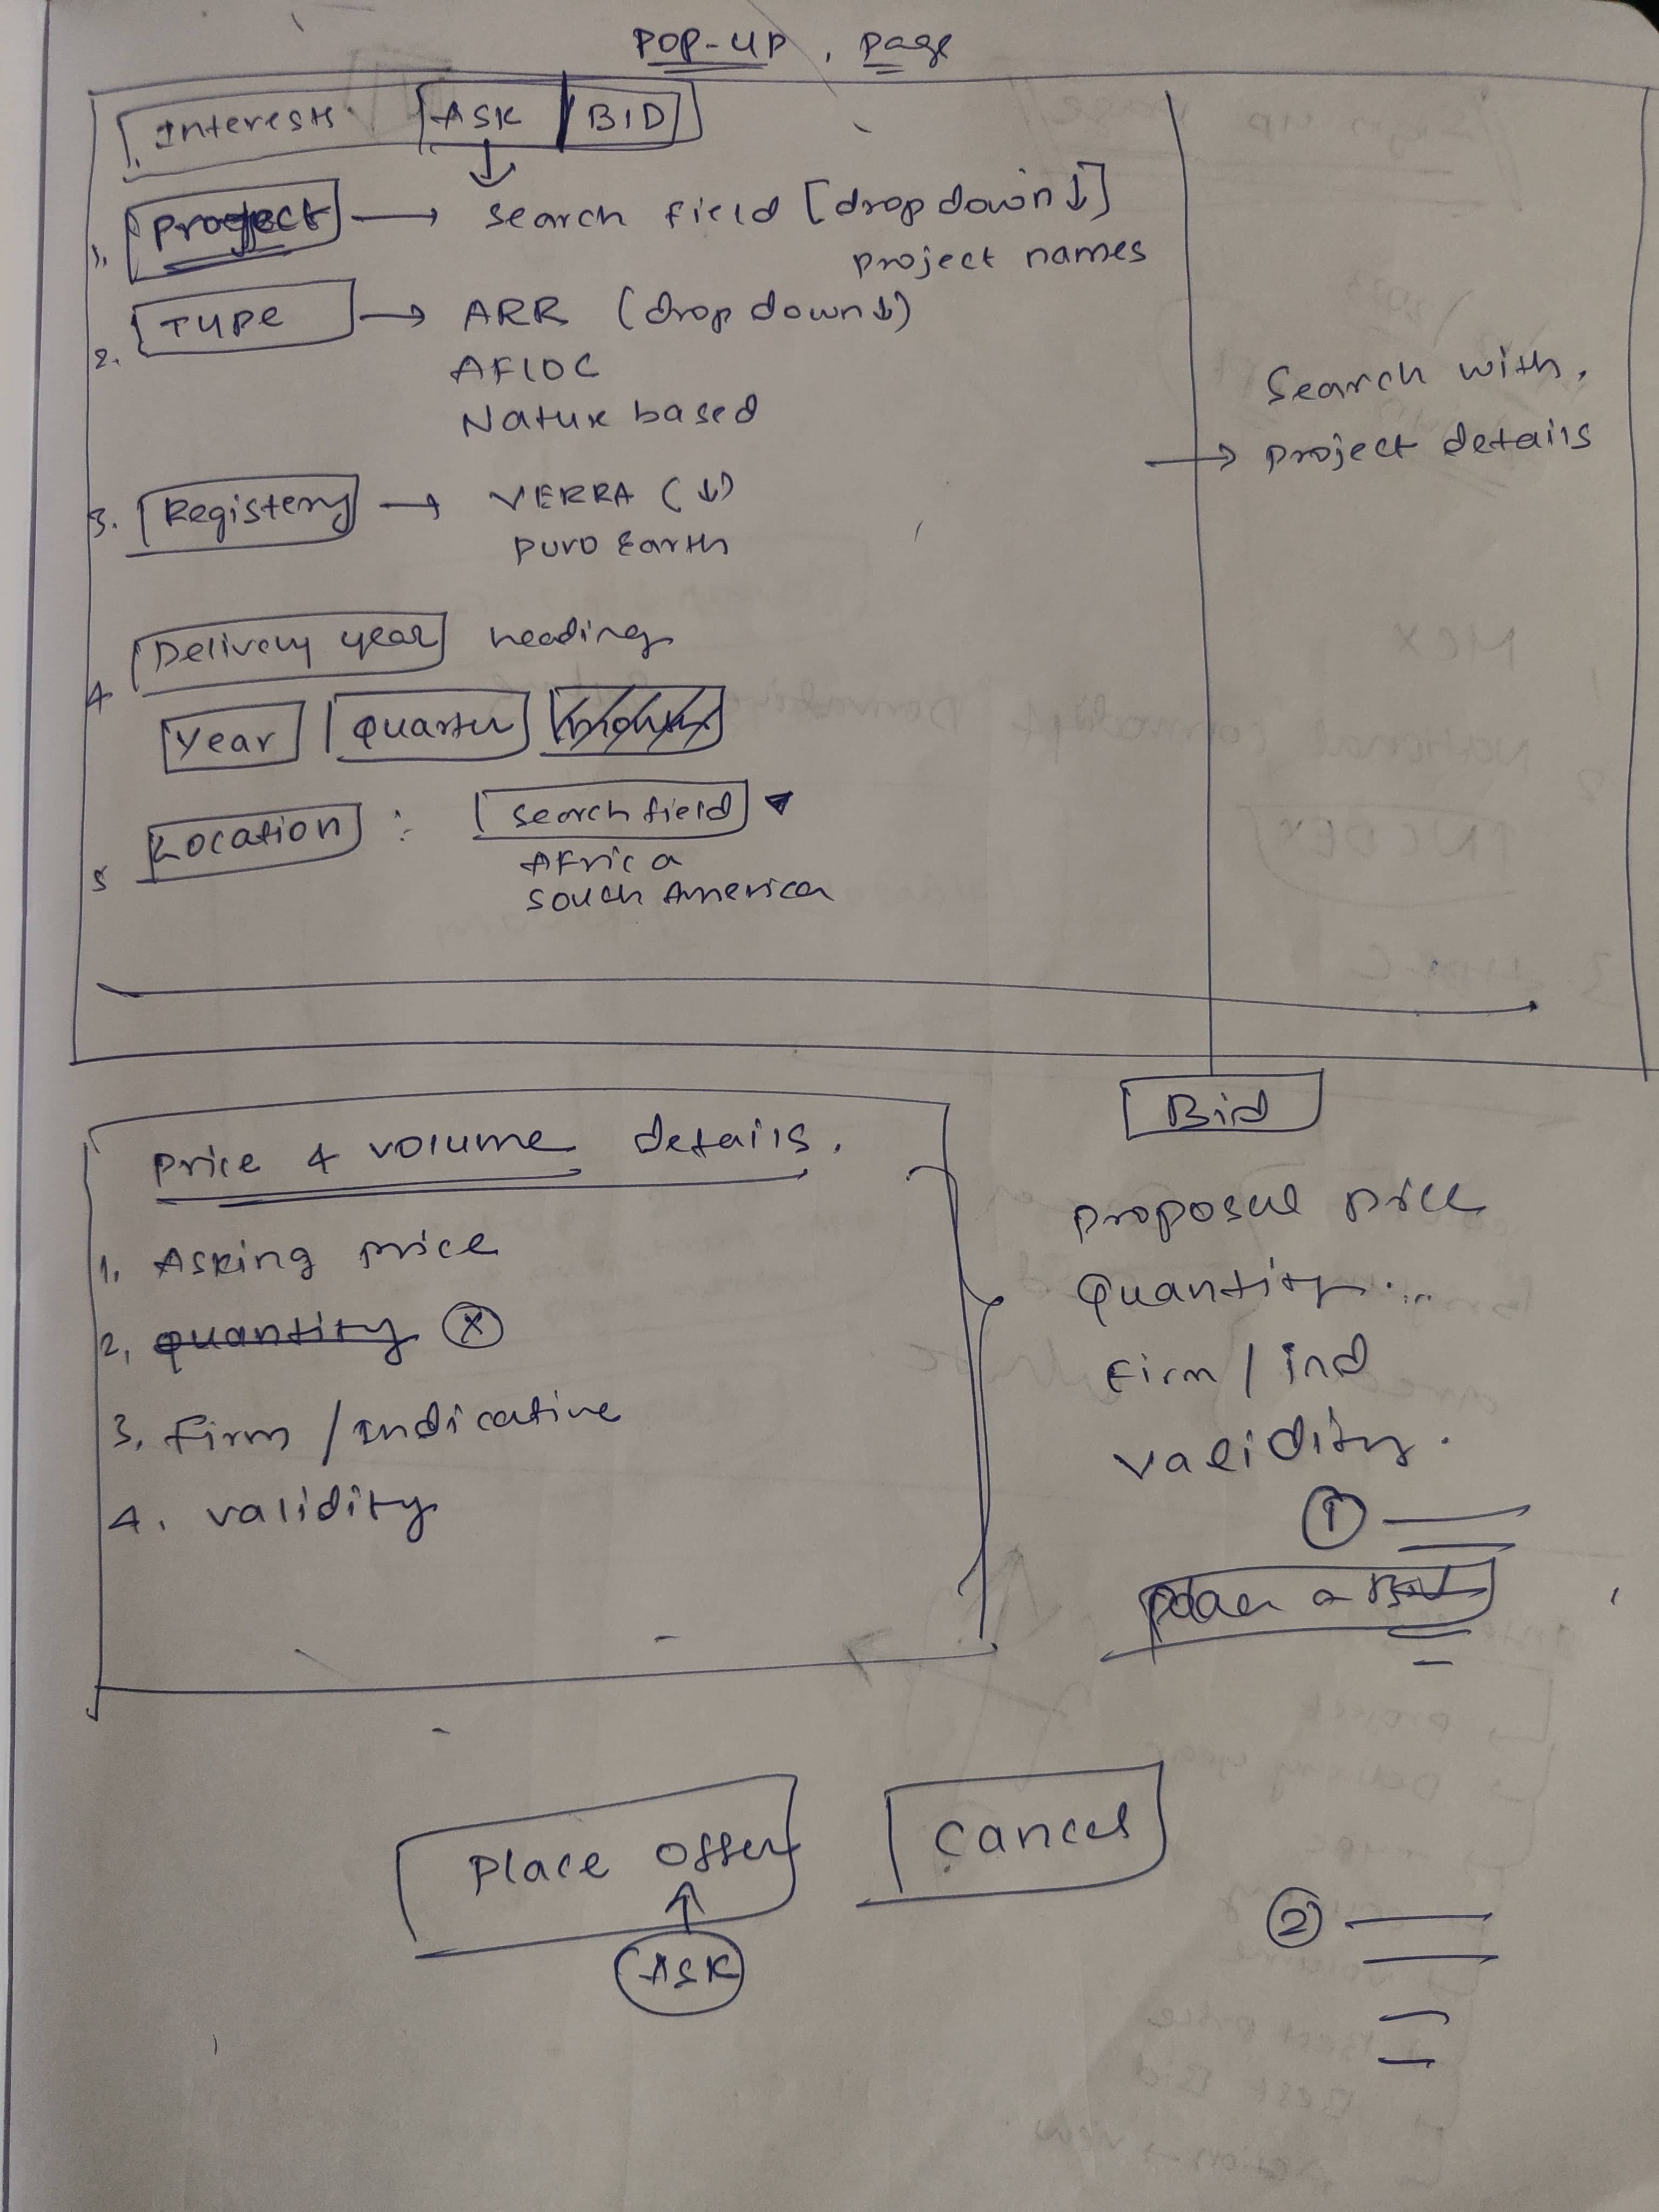 POP-UP. Page
Interests ASK BID
1. Project → search field [drop down ↓]
project names
2. TYPE → ARR (drop down ↓)
AFIOC
Nature based
3. Registery → VERRA (↓)
puro Earth
4 Delivery year heading
Year Quarter
5 Location : search field
Africa
South America
Search with.
→ project details
Price & volume details.
1. Asking price
2, quantity (x)
3. firm / indicative
4. validity
Bid
proposal price
Quantity...
Firm / ind
validity.
1
Place a Bid
Place offer
ASK
Cancel
2